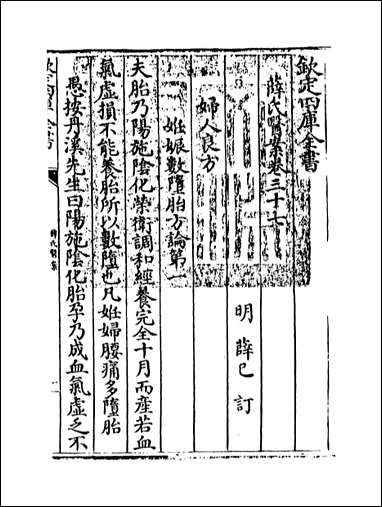 欽定四庫全書
薛氏醫案卷三十七
明 薛已 訂
婦人良方
妊娠數墮胎方論第一
夫胎乃陽施隂化榮衛調和經養完全十月而產若血
氣虛損不能養胎所以數墮也凡妊婦腰痛多墮胎
愚按丹溪先生曰陽施隂化胎孕乃成血氣虛乏不
薛氏醫案